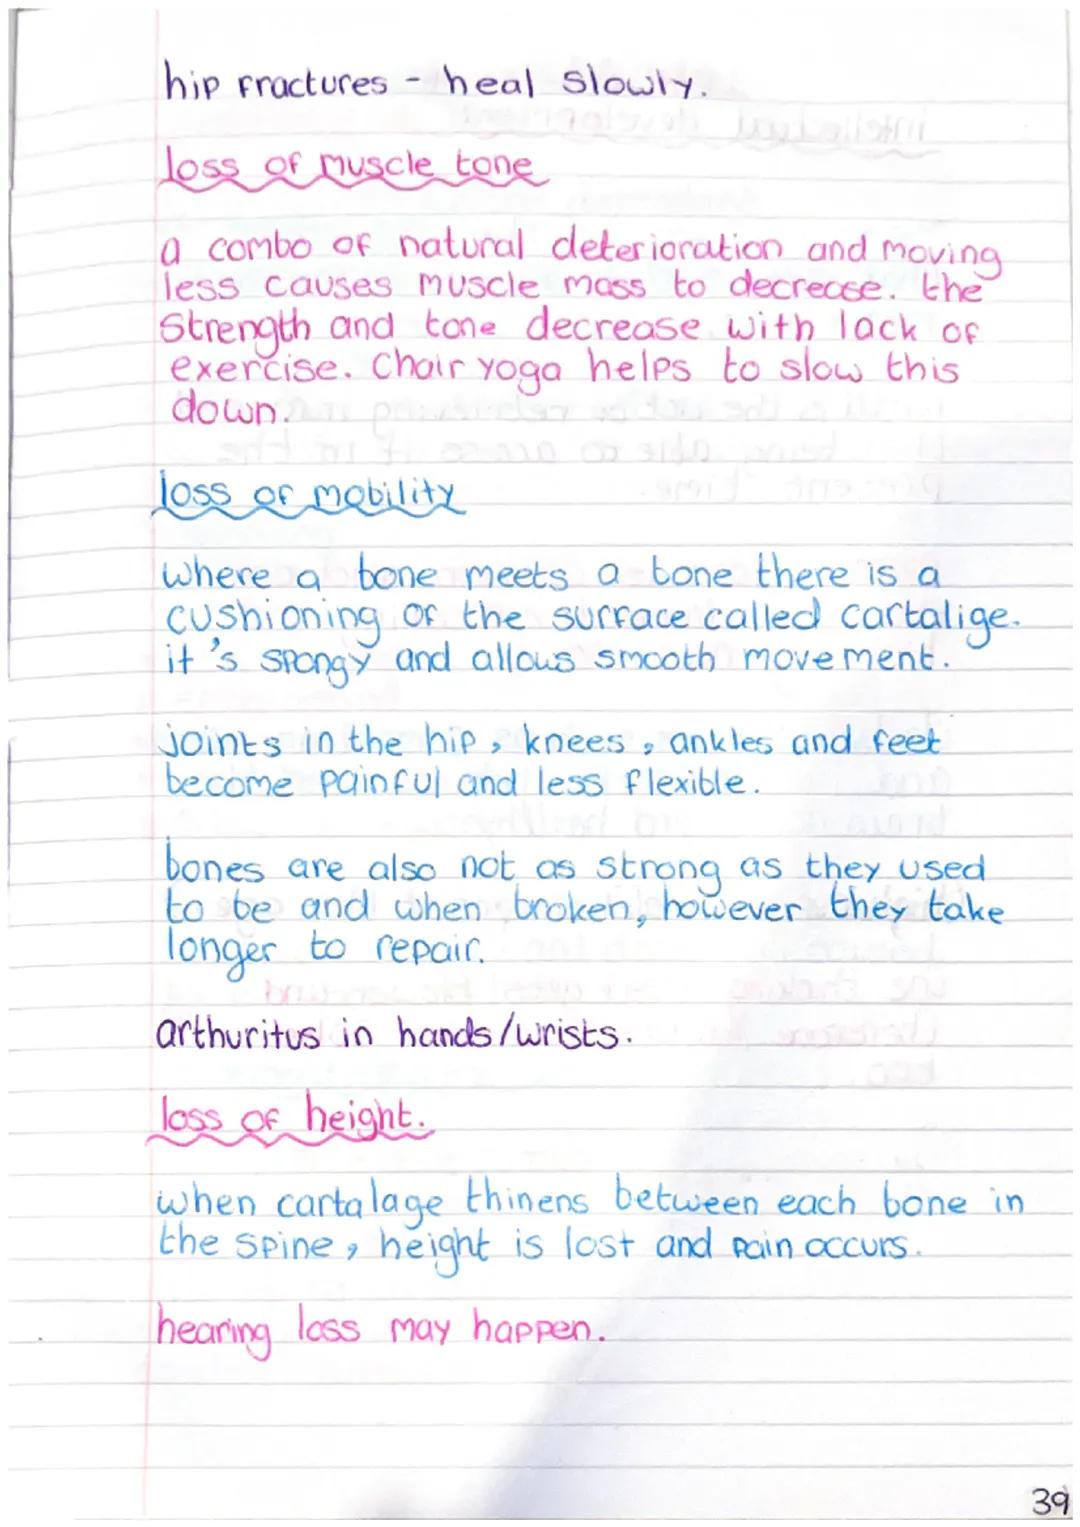 hip fractures - heal slowly.
loss of muscle tone
a combo of natural deterioration and moving
less causes muscle mass to decrease. the
strength and tone decrease with lack of
exercise. Chair yoga helps to slow this
down.
loss of mobility
where a bone meets a bone there is a
cushioning of the surface called cartalige.
it's spongy and allows smooth movement.
joints in the hip, knees, ankles and feet
become painful and less flexible.
bones are also not as strong as they used
to be and when broken, however they take
longer to repair.
arthuritus in hands/wrists.
loss of height.
when cartalage thinens between each bone in
the spine, height is lost and pain occurs.
hearing loss may happen.
39